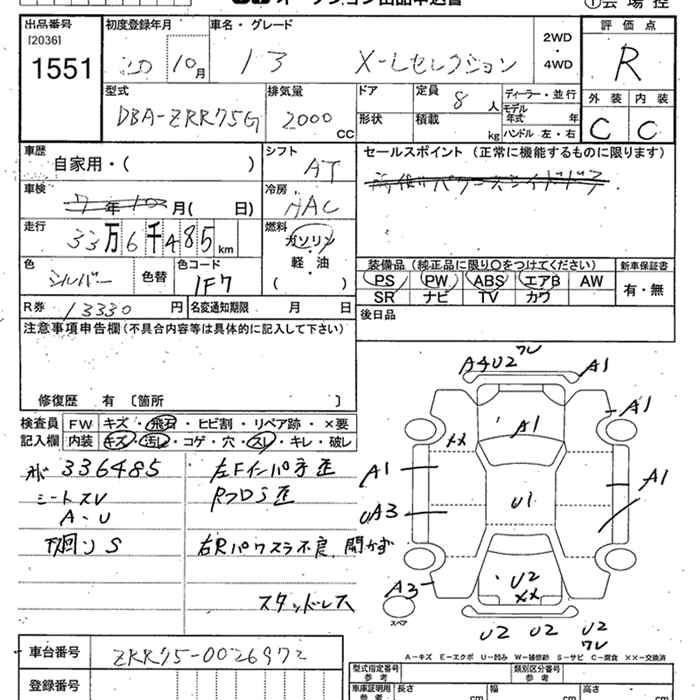 オークション出品申込書
①会場控
出品番号 [2036] 1551
初度登録年月 20 10月
車名・グレード 13 X-Lセレクション
2WD・4WD
評価点 R
外装 C 内装 C
型式 DBA-ZRR75G
排気量 2000 CC
ドア 形状
定員 8 人
積載 kg
ディーラー・並行
モデル年式 年
ハンドル 左・右
車歴 自家用・( )
シフト AT
セールスポイント (正常に機能するものに限ります)
車検 7年10月( 日)
冷房 AAC
走行 33万6千485km
燃料 ガソリン 軽・油 ( )
色 シルバー 色替
色コード 1F7
装備品 (純正品に限り〇をつけてください)
PS PW ABS エアB AW
SR ナビ TV カワ
新車保証書 有・無
R券 13330円
名変通知期限 月 日
後日品
注意事項申告欄 (不具合内容等は具体的に記入して下さい)
修復歴 有 [箇所 ]
検査員記入欄
FW キズ・飛石・ヒビ割・リペア跡・×要
内装 キズ・汚れ・コゲ・穴・スレ・キレ・破レ
336485
シートスV
A・U
下回りS
左Fインパネ歪
Rフロア歪
右Rパワスラ不良 開かず
スタッドレス
A4U2 ワレ A1
A1
××
A1
A1
U1
A1
UA3
A3
U2
××
スペア
U2 U2 U2
ワレ
A=キズ E=エクボ U=凹み W=補修跡 S=サビ C=腐食 ××=交換済
車台番号 ZRR75-0026972
登録番号
型式指定番号 参考
類別区分番号 参考
車庫証明用 参考
長さ cm
幅 cm
高さ cm